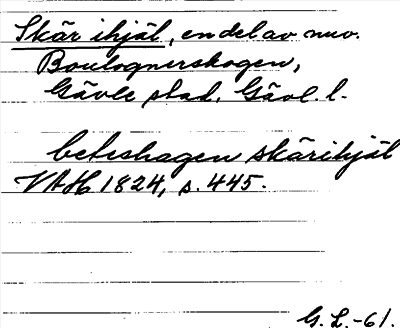 Skär ihjäl, en del av nuv.
Boulognerskogen,
Gävle stad. Gävl. l.
beteshagen skärihjäl
VAH 1824, s. 445.
G. L. -61.